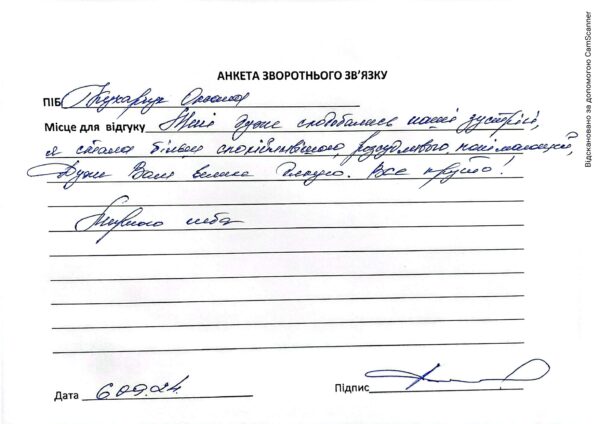 АНКЕТА ЗВОРОТНЬОГО ЗВ'ЯЗКУ
ПІБ Кухарчук Оксана
Місце для відгуку Мені дуже сподобались наші зустрічі,
я стала більш спокійнішою, розсудливою,
Дуже Вам велика дякую. Все круто!
Мирного неба
Дата 6.09.24. Підпис
Відскановано за допомогою CamScanner